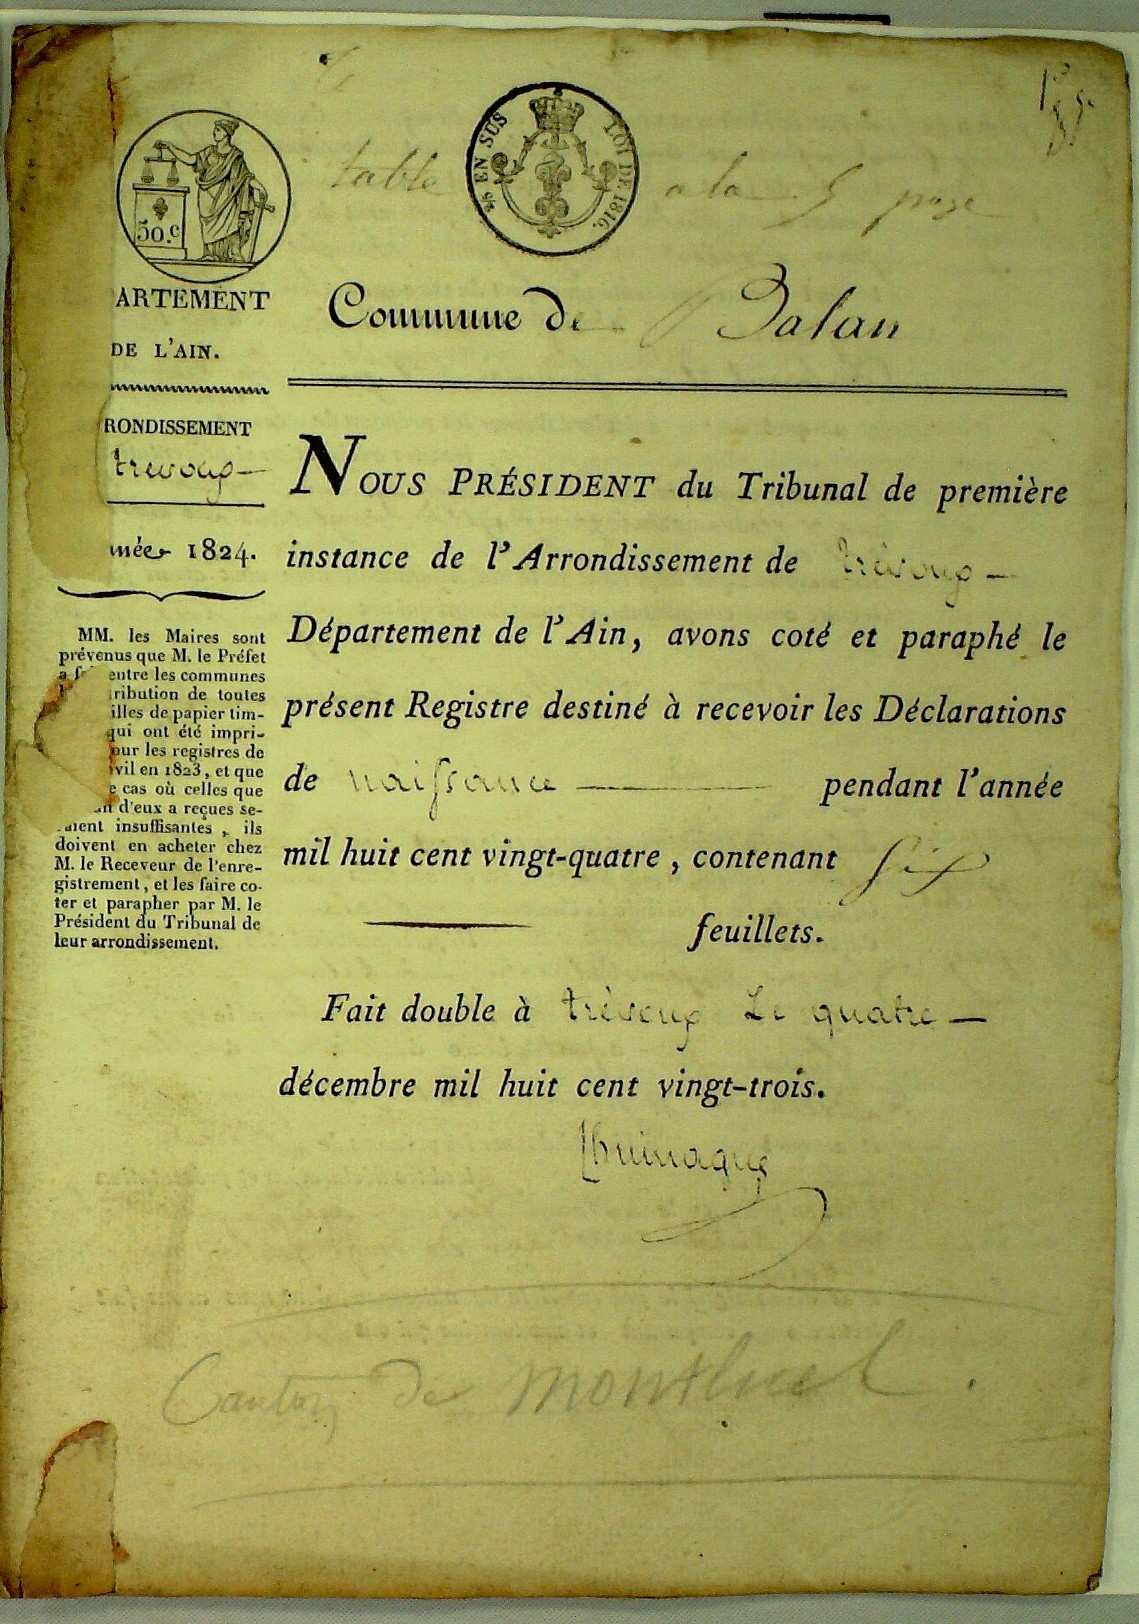 table a la 5 page
¼ EN SUS LOI DE 1816.
50.c
ARTEMENT
DE L'AIN.
Commune de Balan
RONDISSEMENT
trevoux
née 1824.
MM. les Maires sont
prévenus que M. le Préfet
a f entre les communes
ribution de toutes
illes de papier tim-
qui ont été impri-
our les registres de
vil en 1823, et que
e cas où celles que
n d'eux a reçues se-
aient insuffisantes, ils
doivent en acheter chez
M. le Receveur de l'enre-
gistrement, et les faire co-
ter et parapher par M. le
Président du Tribunal de
leur arrondissement.
NOUS PRÉSIDENT du Tribunal de première
instance de l'Arrondissement de trévoux
Département de l'Ain, avons coté et paraphé le
présent Registre destiné à recevoir les Déclarations
de naissance pendant l'année
mil huit cent vingt-quatre, contenant six
feuillets.
Fait double à trévoux Le quatre
décembre mil huit cent vingt-trois.
Canton de montluel.